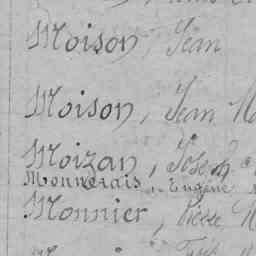 Moison, Jean
Moison, Jean
Moizan, Joseph
Monnerais, Eugène
Monnier, Pierre